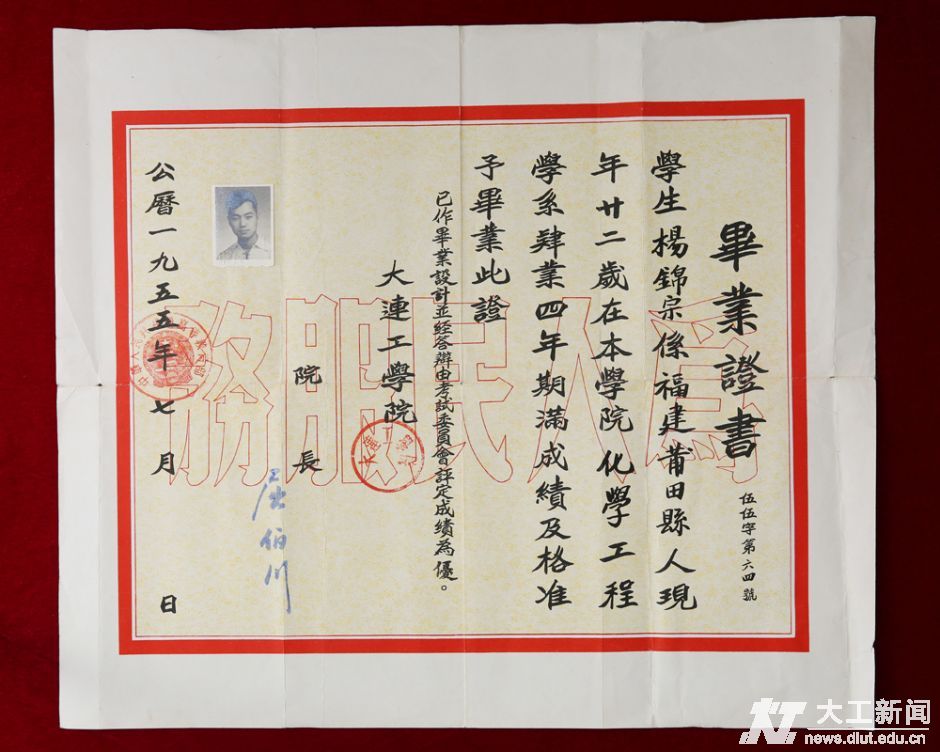 畢業證書
伍伍字第六四號
學生楊錦宗係福建莆田縣人現
年廿二歲在本學院化學工程
學系肄業四年期滿成績及格准
予畢業此證
已作畢業設計並經答辯由考試委員會評定成績為優。
大連工學院
院長
屈伯川
公曆一九五五年七月 日
為人民服務
大工新闻
news.dlut.edu.cn